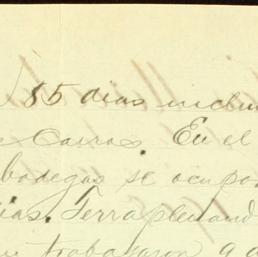 85 dias inclu
Carros. En el
bodegas se ocupo
ias. Terraplenand
trabajaron